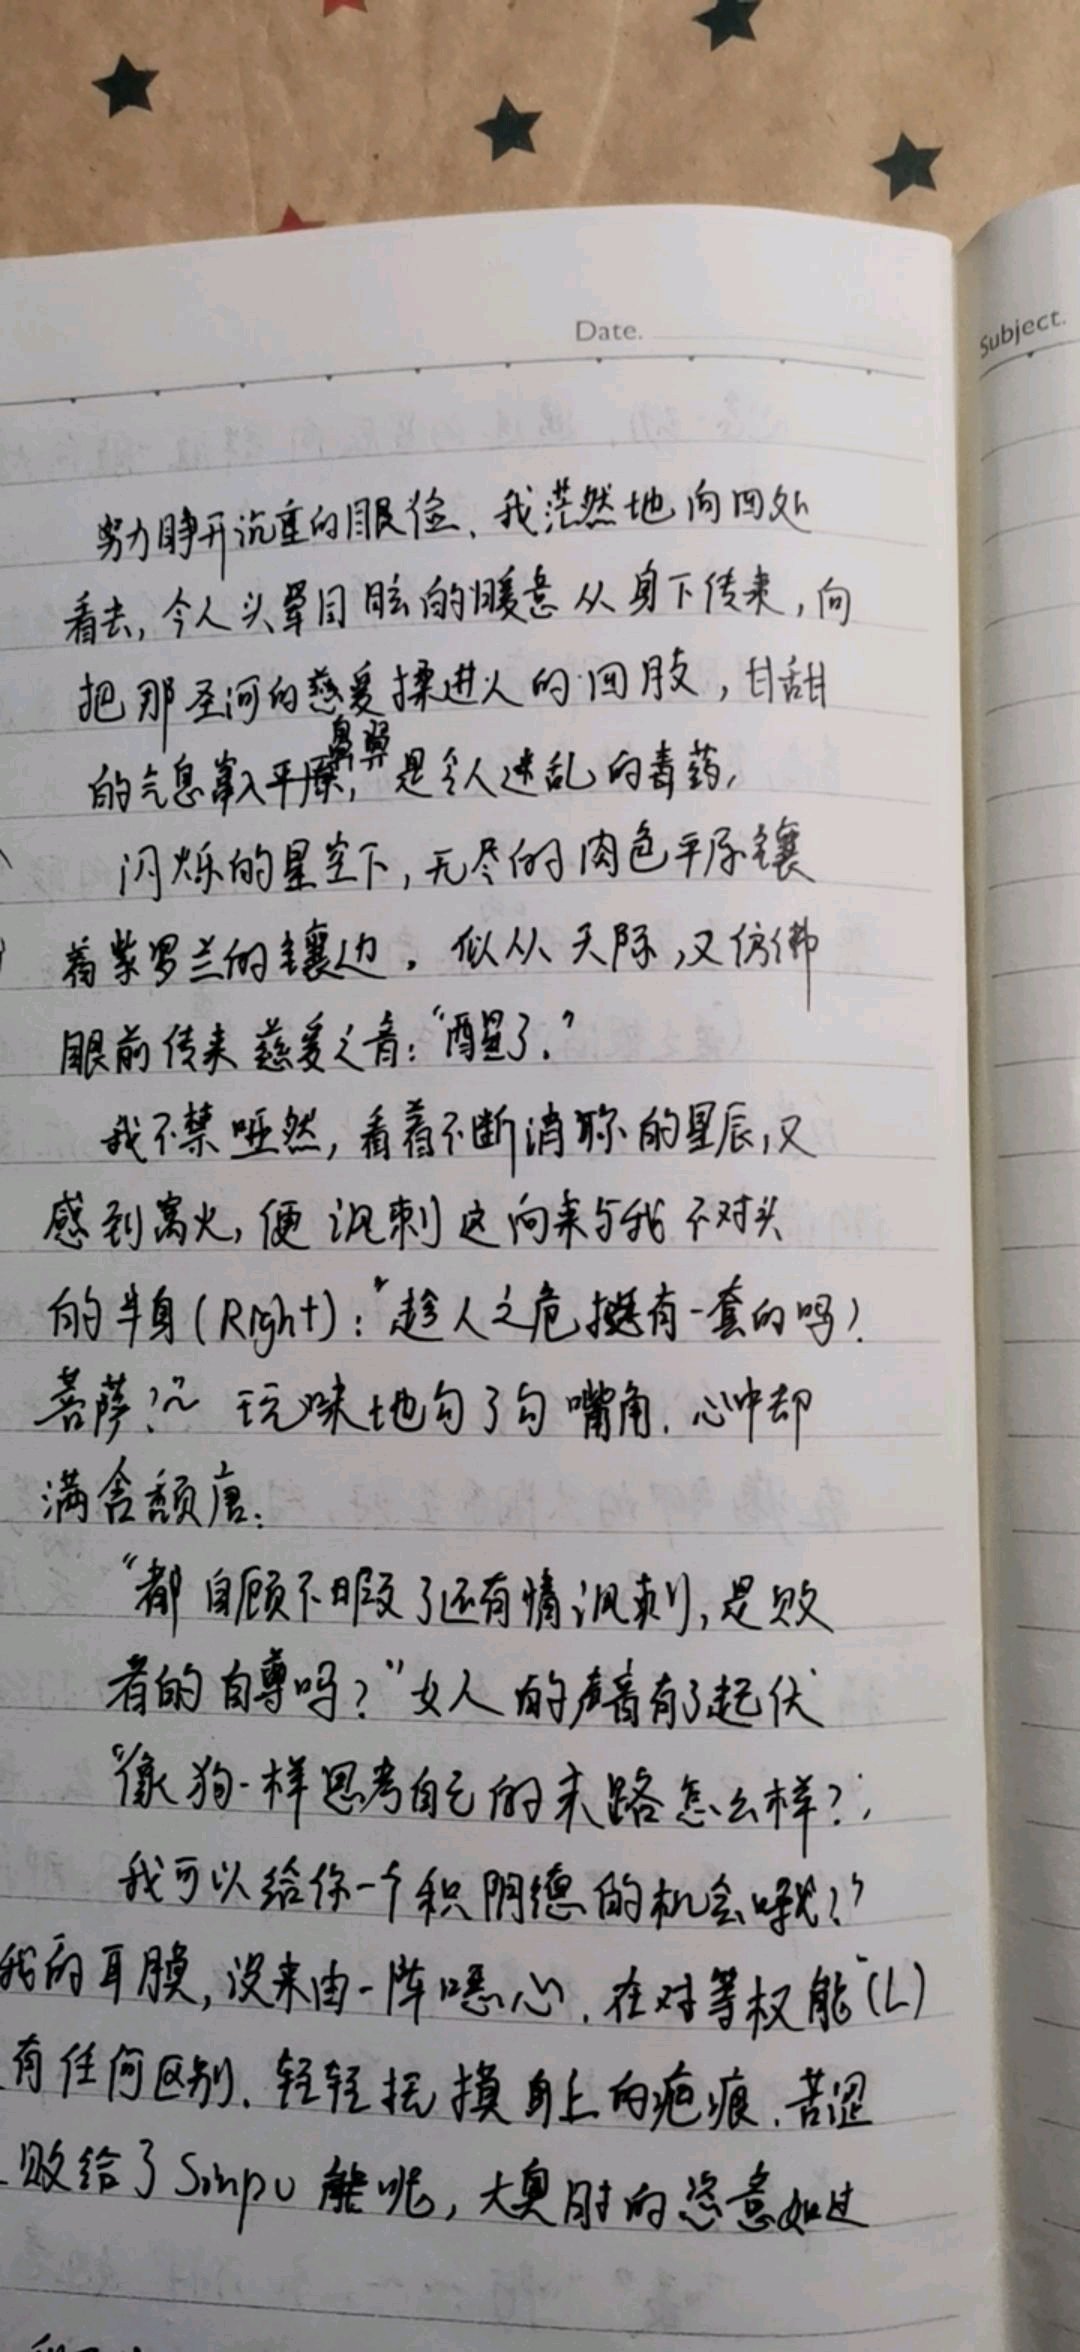 Date.
Subject.
努力睁开沉重的眼睑、我茫然地向四处
看去，令人头晕目眩的暖意从身下传来，向
把那圣河的慈爱揉进人的四肢，甘甜
鼻翼
的气息窜入平原，是令人迷乱的毒药，
闪烁的星空下，无尽的肉色平原镶
着紫罗兰的镶边。似从天际，又仿佛
眼前传来慈爱之音：“醒了？”
我不禁哑然，看着不断消弥的星辰，又
感到窝火，便讽刺这向来与我不对头
的半身(Right)：“趁人之危挺有一套的吗？
菩萨？” 玩味地勾了勾嘴角．心中却
满含颓唐．
“都自顾不暇了还有情讽刺，是败
者的自尊吗？”女人的声音有了起伏
“像狗一样思考自己的末路怎么样？，
我可以给你一个积阴德的机会哦？”
我的耳膜，没来由一阵恶心．在对等权能(L)
有任何区别．轻轻抚摸身上的疤痕．苦涩
败给了 能呢，大奥时的恣意如过